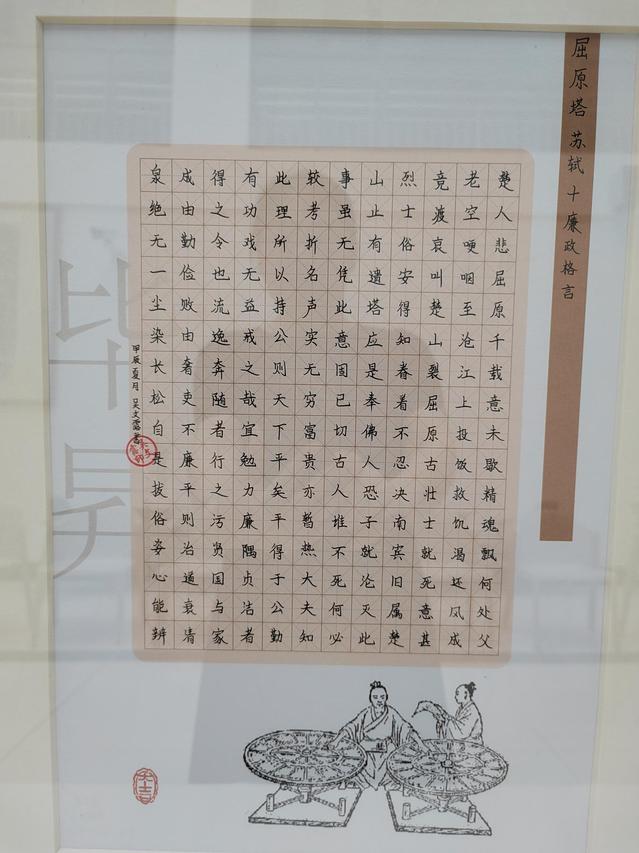 屈原塔 苏轼 十廉政格言
楚人悲屈原千载意未歇精魂飘何处父
老空哽咽至沧江上投饭救饥渴还风成
竞渡哀叫楚山裂屈原古壮士就死意甚
烈士俗安得知眷着不忍决南宾旧属楚
山止有遗塔应是奉佛人恐子就沦灭此
事虽无凭此意固已切古人堆不死何必
较考折名声实无穷富贵亦暂热大夫知
此理所以持公则天下平矣平得于公勤
有功戏无益戒之哉宜勉力廉隅贞洁者
得之令也流逸奔随者行之污贤国与家
成由勤俭败由奢吏不廉平则治道衰清
泉绝无一尘染长松自是拔俗姿心能辨
甲辰夏月 吴文书
毕昇